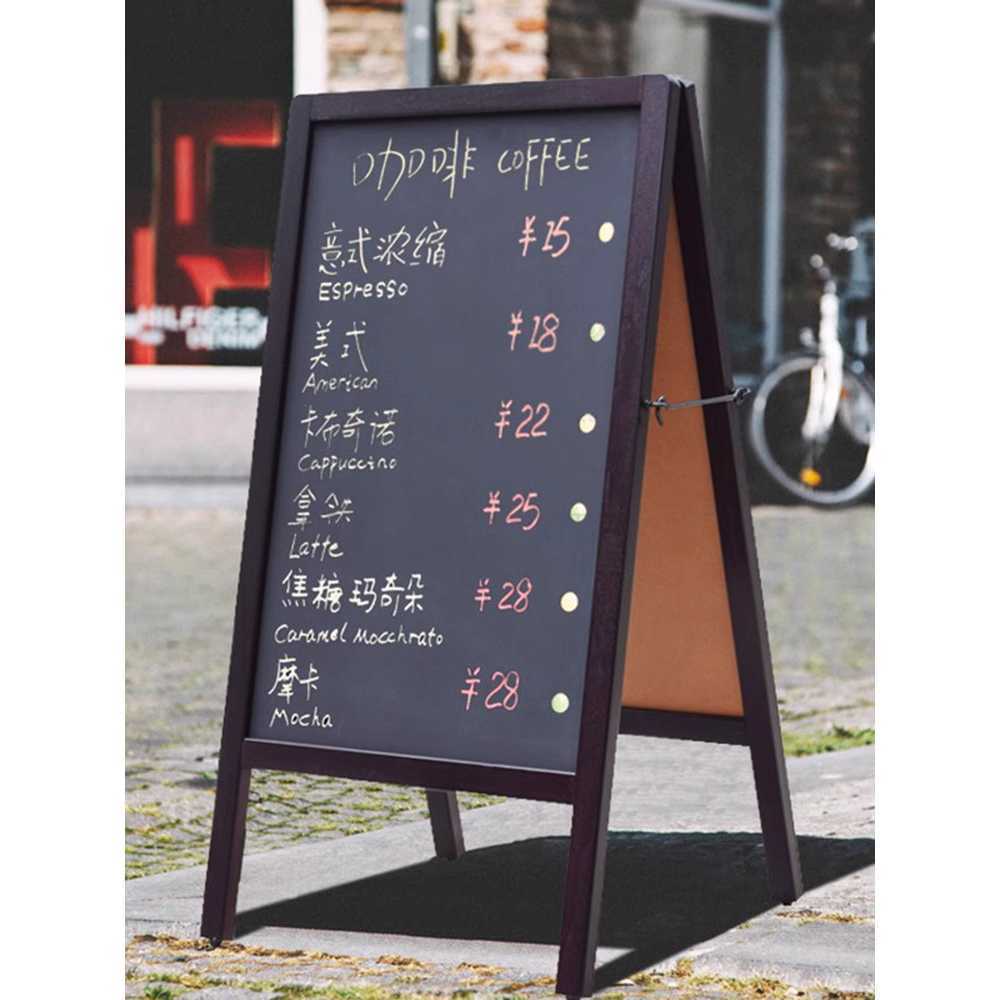 咖啡 COFFEE
意式浓缩 ¥15
Espresso
美式 ¥18
American
卡布奇诺 ¥22
Cappuccino
拿铁 ¥25
Latte
焦糖玛奇朵 ¥28
Caramel Mocchrato
摩卡 ¥28
Mocha
HILFIGER
DENIM